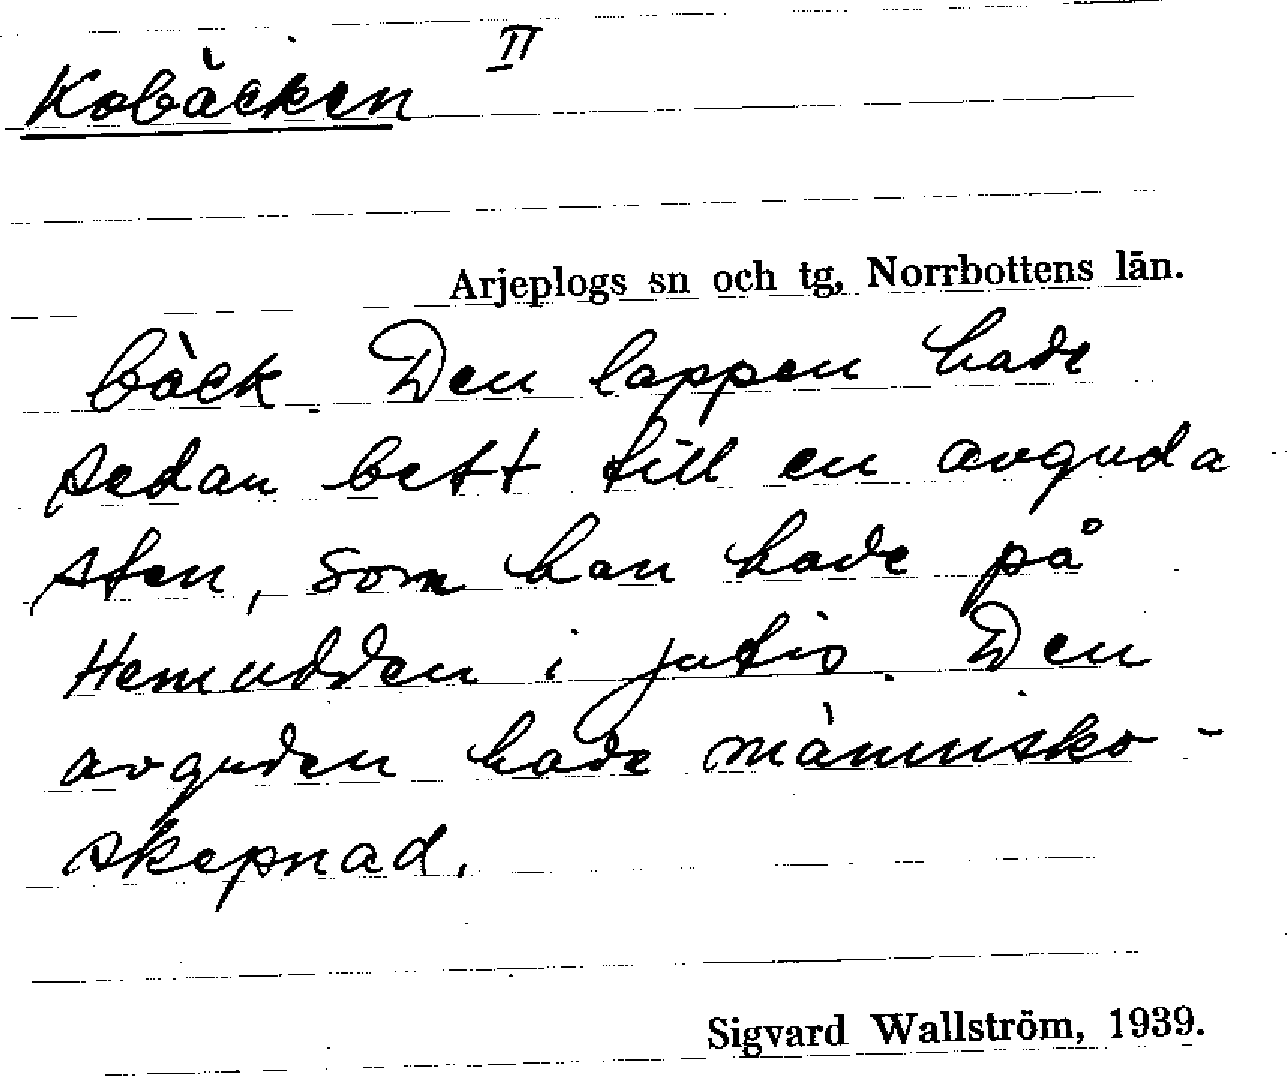 Kobäcken II
Arjeplogs sn och tg, Norrbottens län.
bäck. Den lappen hade
sedan bett till en avguda
sten, som han hade på
Hemudden i Jutis. Den
avguden hade människo-
skepnad.
Sigvard Wallström, 1939.